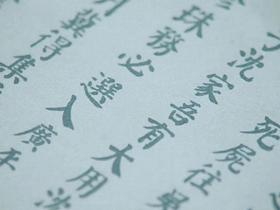 死屍往
沈家吾有大用沈
珠務必選入廣
得集